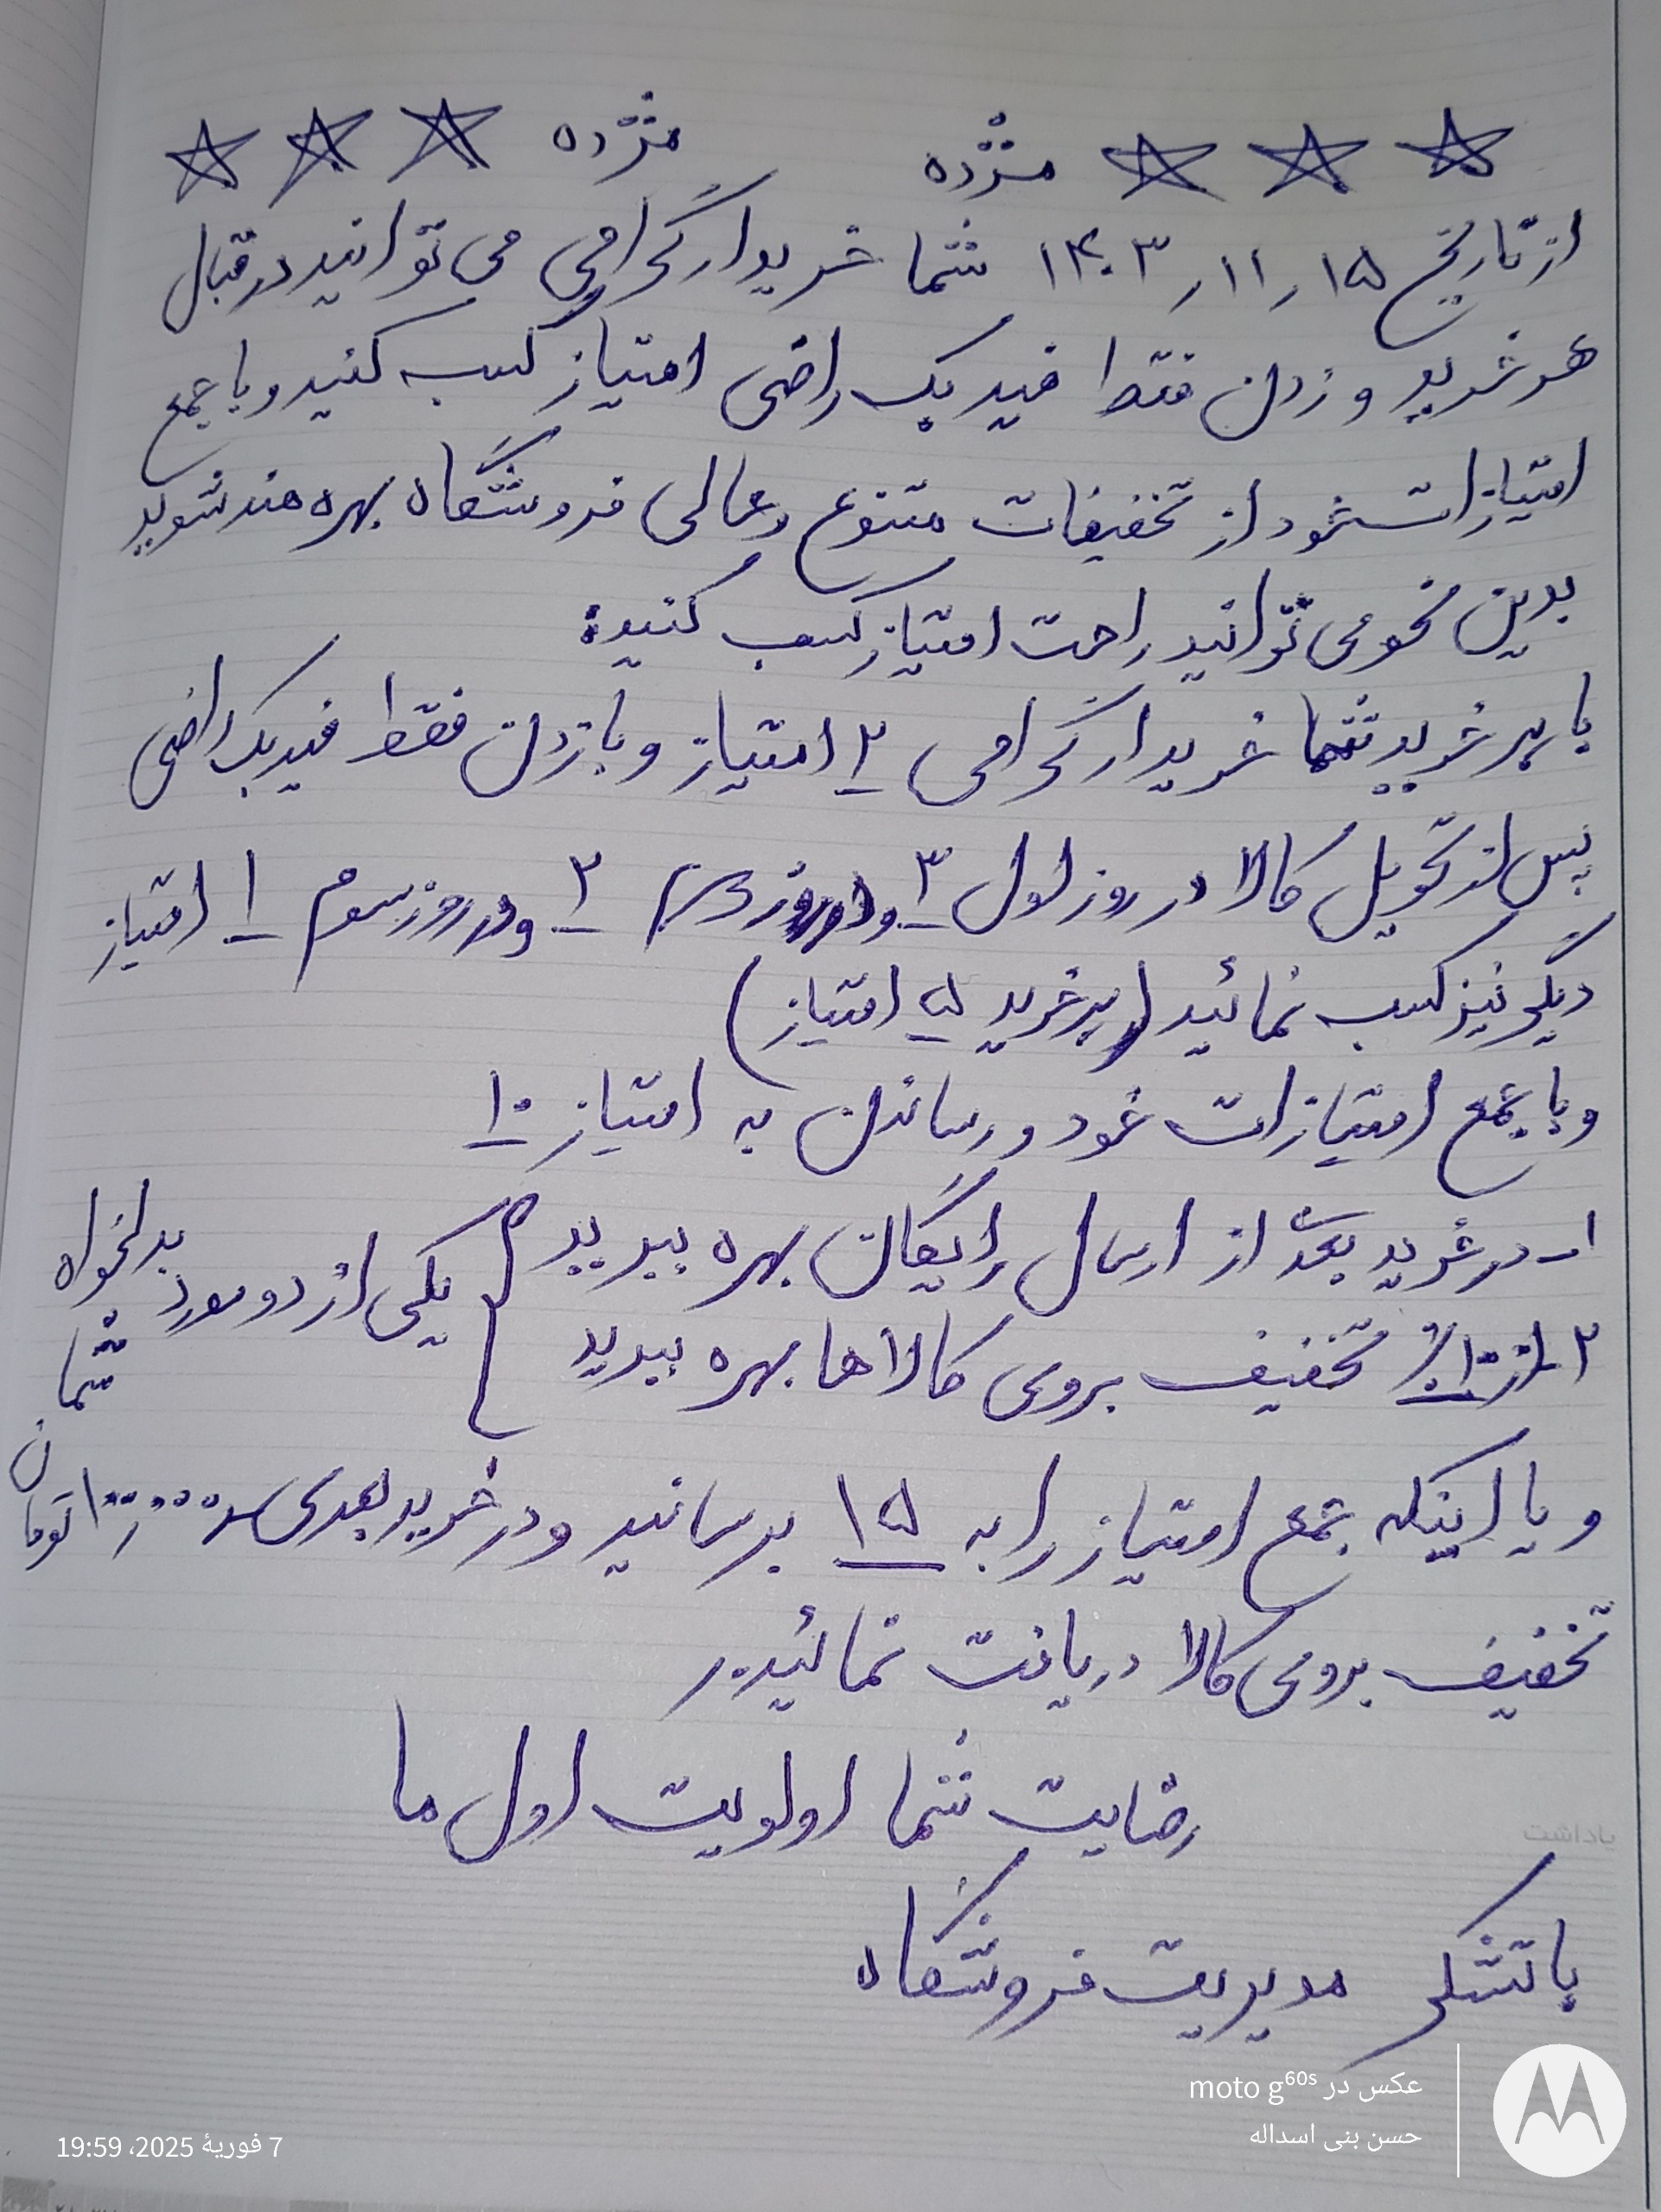 مژده مژده
از تاریخ ۱۴۰۳٫۱۱٫۱۵ شما خریدار گرامی می توانید در قبال
هر خرید و زدن فقط فیدبک راضی امتیاز کسب کنید و با جمع
امتیازات خود از تخفیفات متنوع و عالی فروشگاه بهره مند شوید
بدین نحو می توانید راحت امتیاز کسب کنید:
با هر خرید شما خریدار گرامی ۲ امتیاز و با زدن فقط فیدبک راضی
پس از تحویل کالا در روز اول ۳ و در روز دوم ۲ و در روز سوم ۱ امتیاز
دیگر نیز کسب نمائید (هر خرید ۵ امتیاز)
و با جمع امتیازات خود و رساندن به امتیاز ۱۰
۱- در خرید بعدی از ارسال رایگان بهره ببرید
۲- از ۱۰٪ تخفیف بروی کالاها بهره ببرید
یکی از دو مورد بدلخواه شما
و یا اینکه جمع امتیاز را به ۱۵ برسانید و در خرید بعدی تومان
تخفیف بروی کالا دریافت نمائید.
رضایت شما اولویت اول ما
با تشکر مدیریت فروشگاه
یاداشت
عکس در moto g60s
حسن بنی اسداله
7 فوریهٔ 2025، 19:59